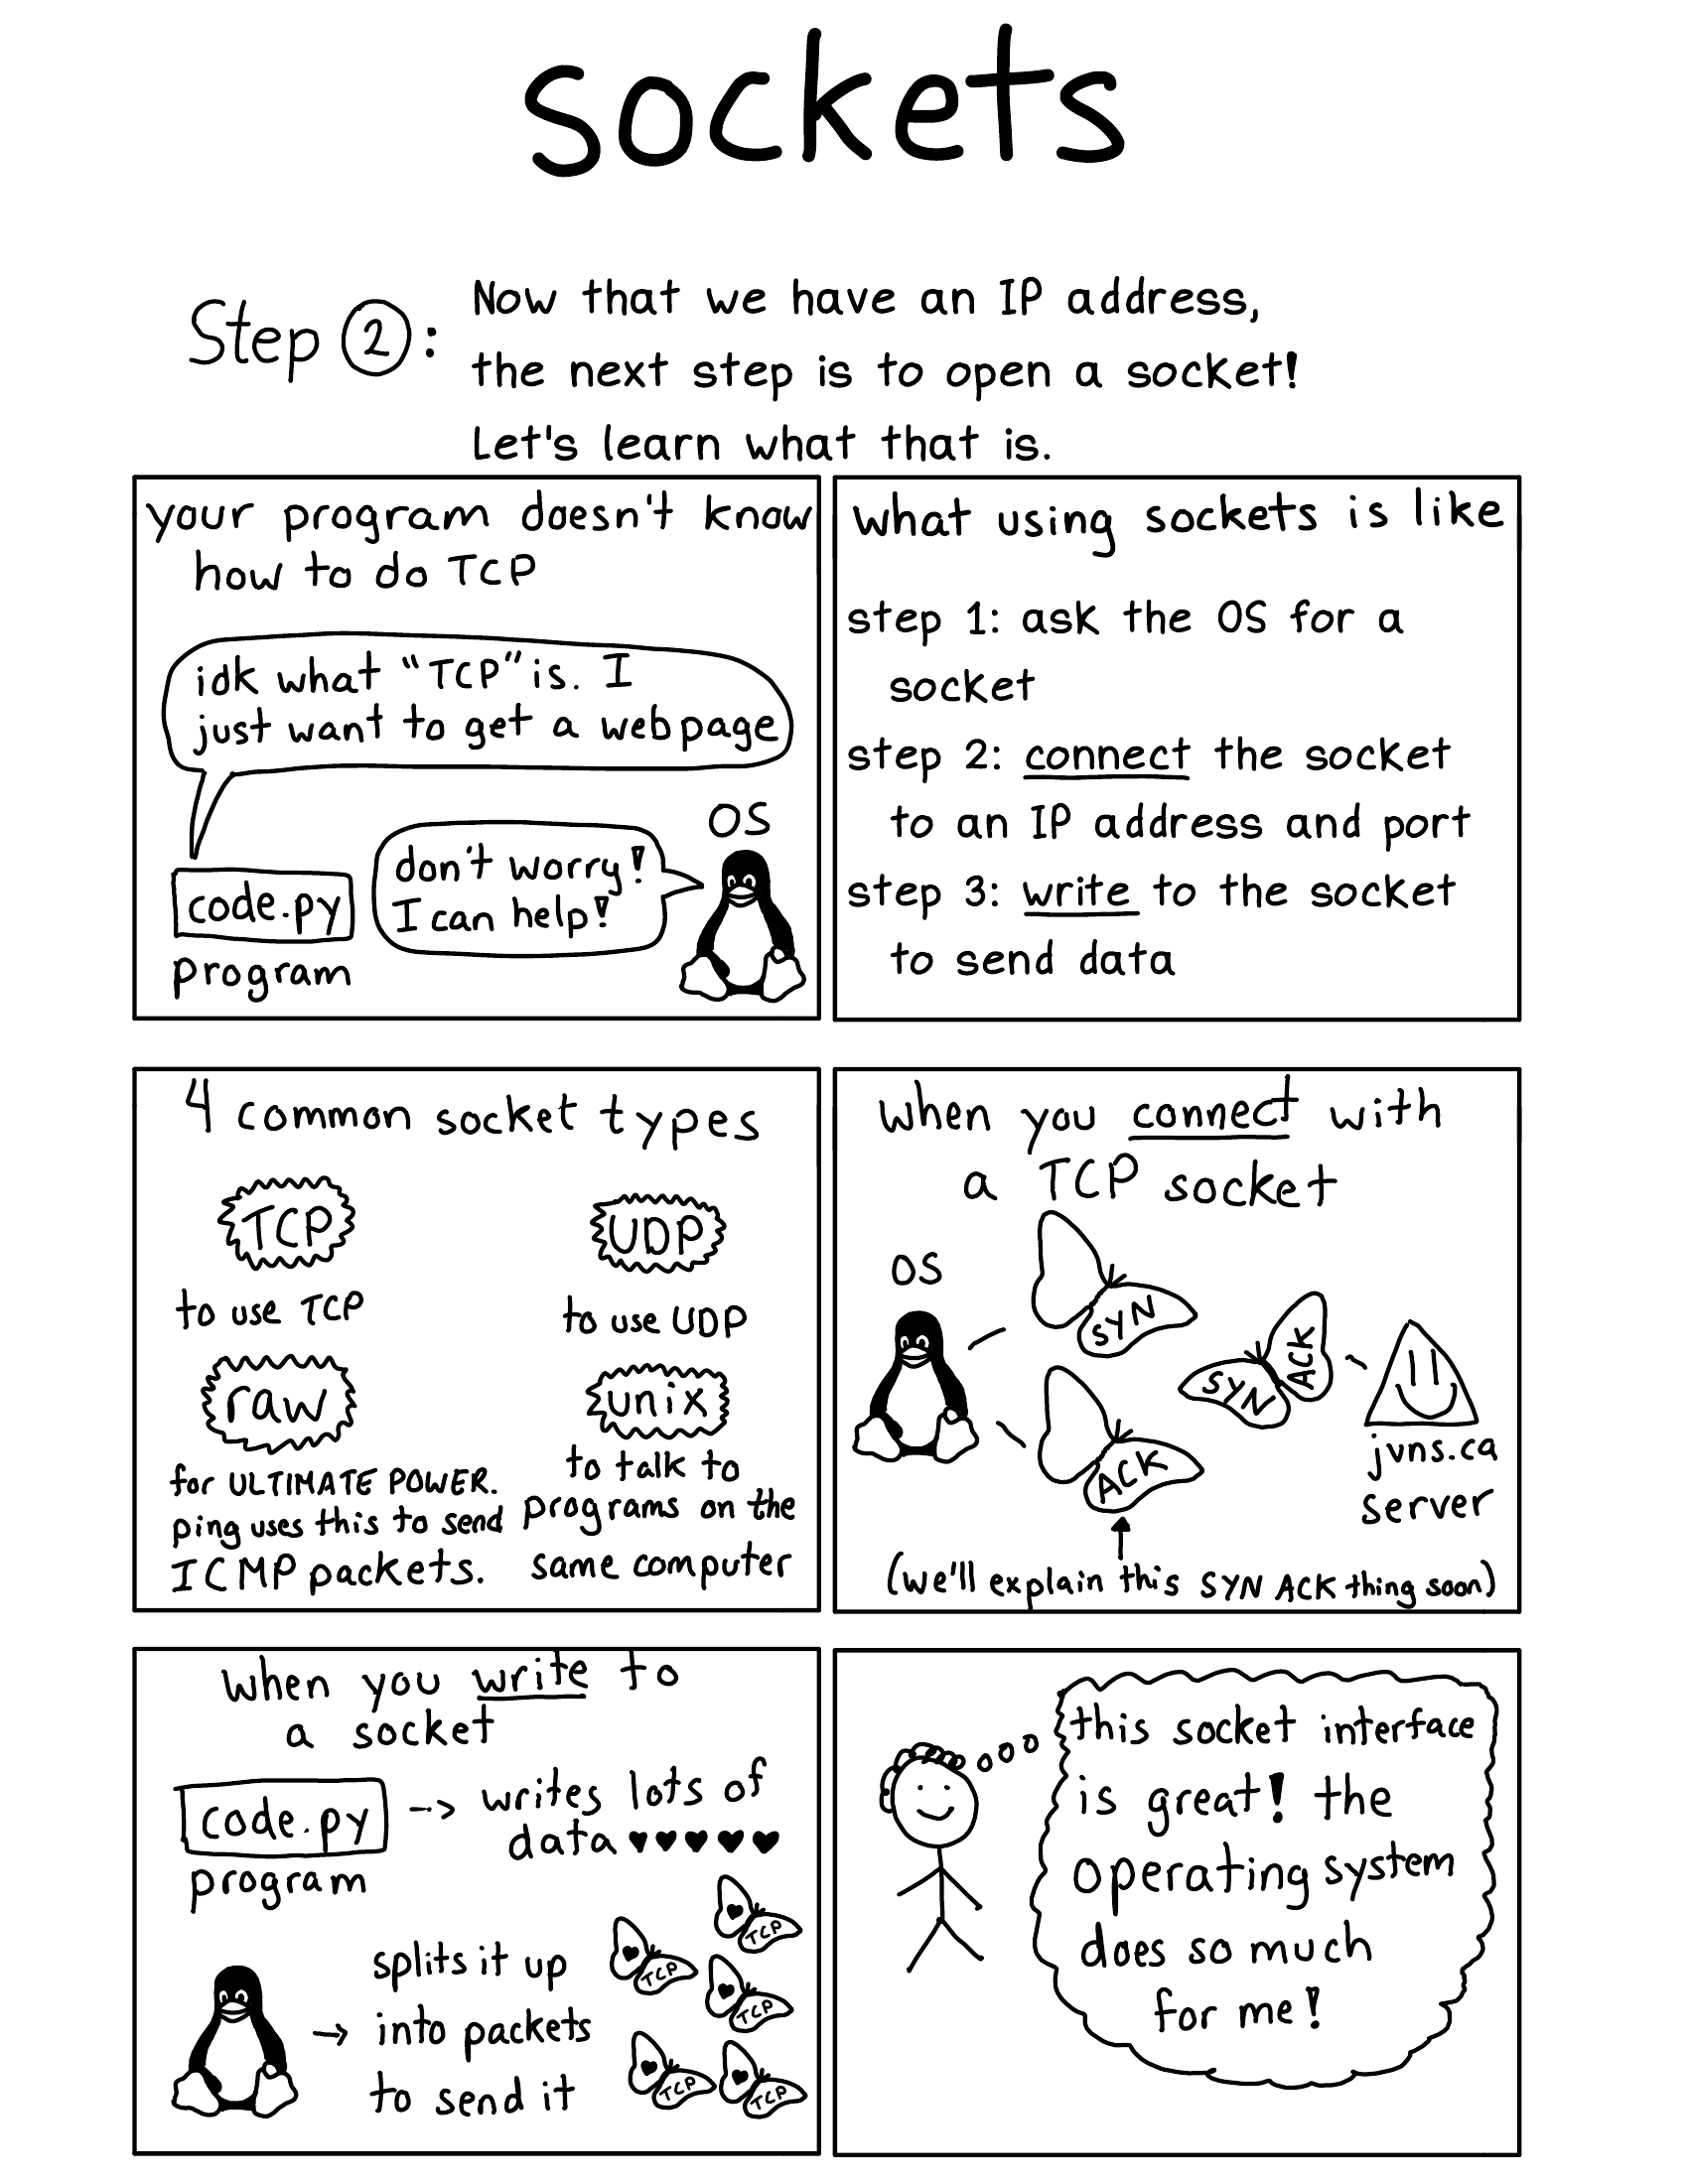 sockets
Step 2:
Now that we have an IP address,
the next step is to open a socket!
Let's learn what that is.
your program doesn't know
how to do TCP
idk what "TCP" is. I
just want to get a webpage
OS
don't worry!
I can help!
code.py
program
what using sockets is like
step 1: ask the OS for a
socket
step 2: connect the socket
to an IP address and port
step 3: write to the socket
to send data
4 common socket types
TCP
to use TCP
UDP
to use UDP
raw
for ULTIMATE POWER.
ping uses this to send
ICMP packets.
unix
to talk to
programs on the
same computer
when you connect with
a TCP socket
OS
SYN
SYN ACK
ACK
jvns.ca
server
(we'll explain this SYN ACK thing soon)
when you write to
a socket
code.py
program
writes lots of
data ♥♥♥♥♥
splits it up
into packets
to send it
TCP
TCP
TCP
TCP
TCP
this socket interface
is great! the
operating system
does so much
for me!